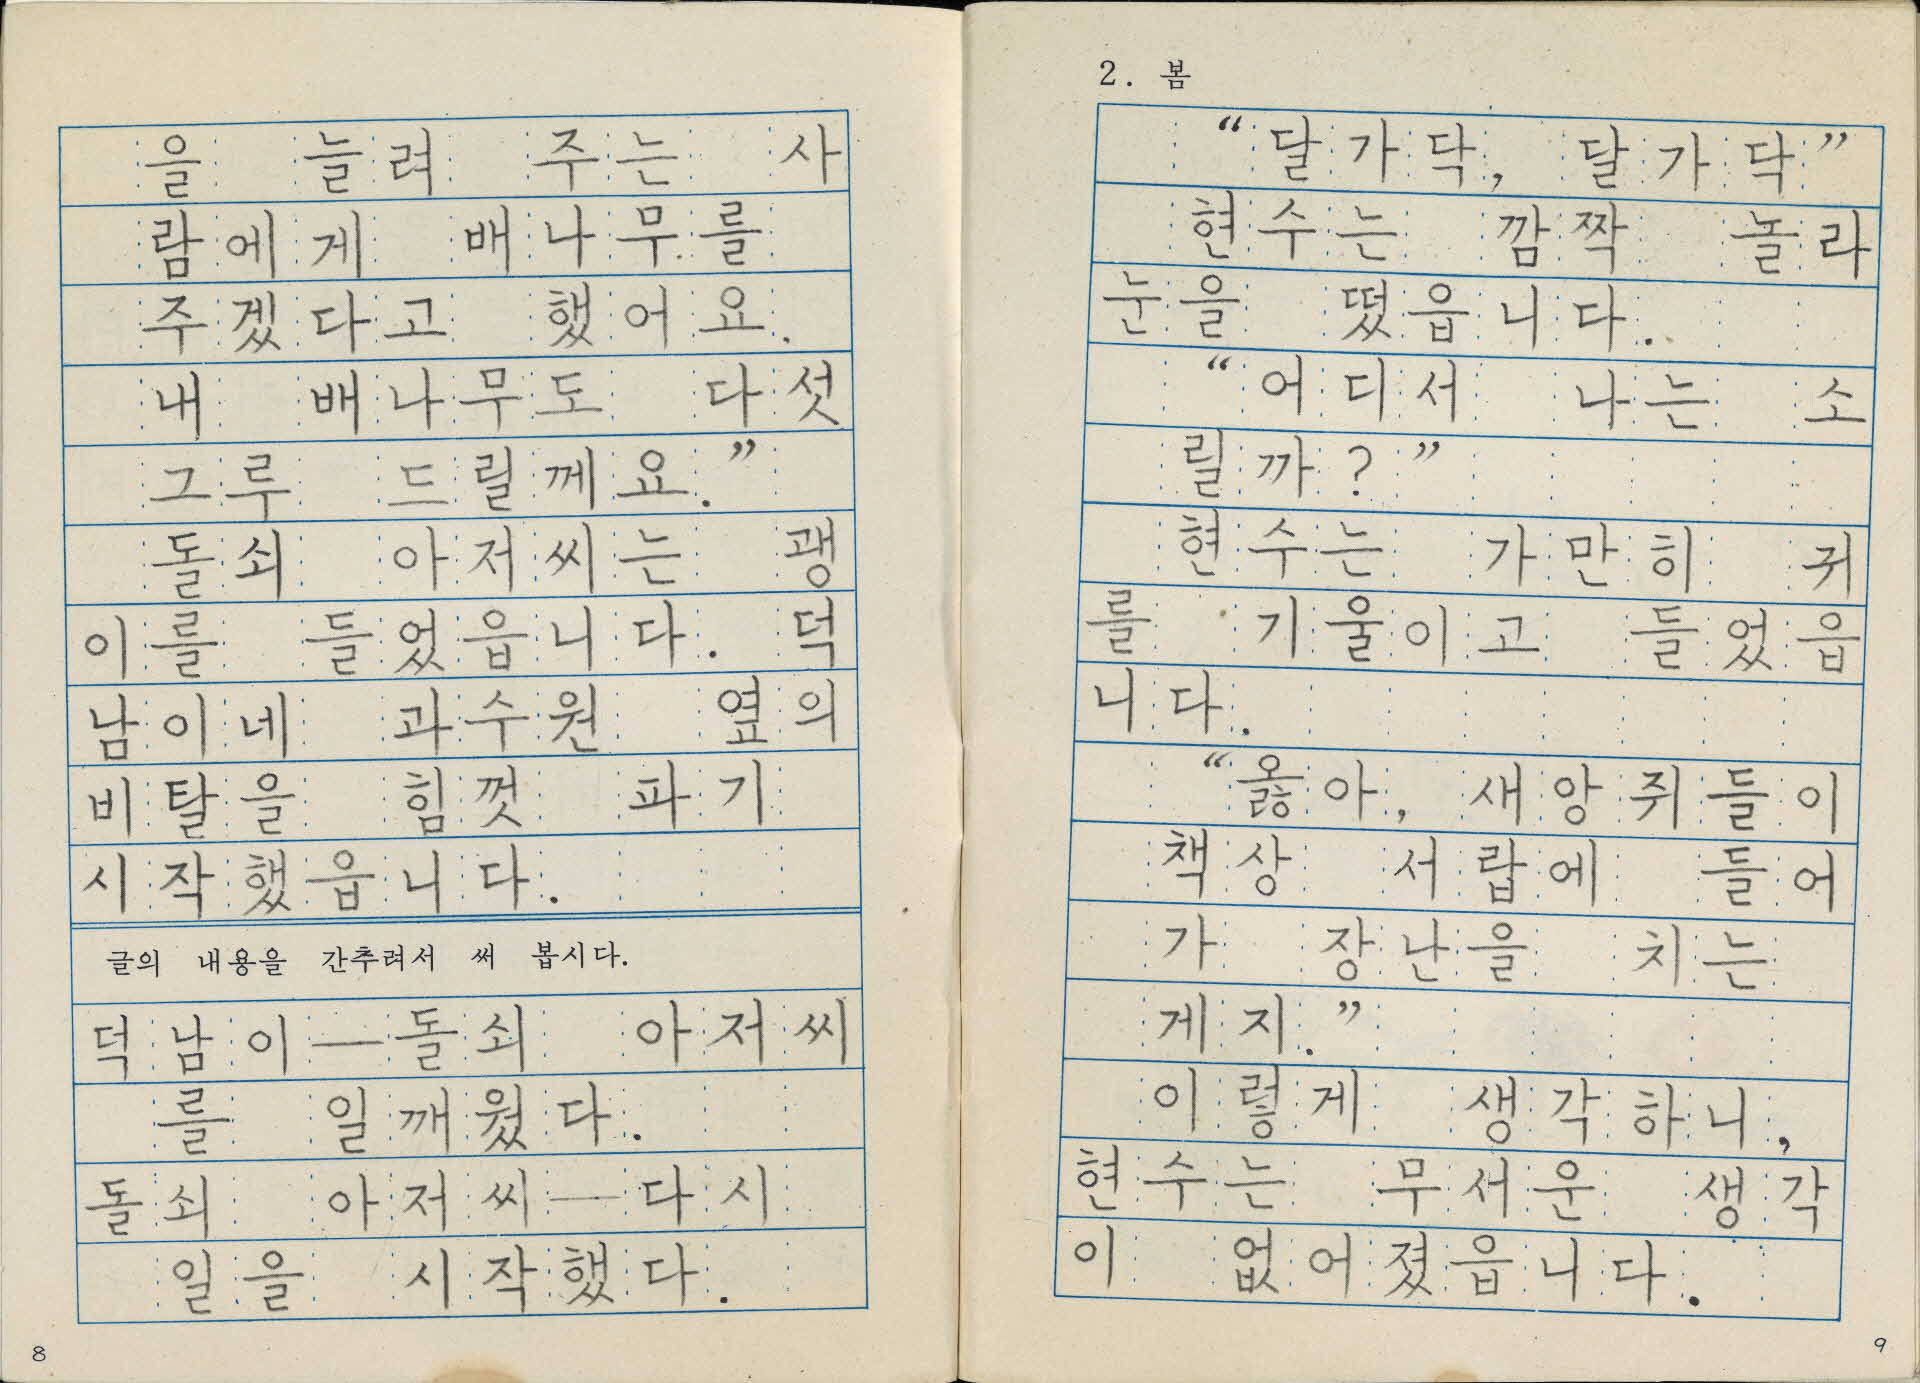 을 늘려 주는 사
람에게 배나무를
주겠다고 했어요.
내 배나무도 다섯
그루 드릴께요.”
돌쇠 아저씨는 괭
이를 들었읍니다. 덕
남이네 과수원 옆의
비탈을 힘껏 파기
시작했읍니다.
글의 내용을 간추려서 써 봅시다.
덕남이—돌쇠 아저씨
를 일깨웠다.
돌쇠 아저씨—다시
일을 시작했다.
8
2. 봄
“달가닥, 달가닥”
현수는 깜짝 놀라
눈을 떴읍니다.
“어디서 나는 소
릴까?”
현수는 가만히 귀
를 기울이고 들었읍
니다.
“옳아, 새앙쥐들이
책상 서랍에 들어
가 장난을 치는
게지.”
이렇게 생각하니,
현수는 무서운 생각
이 없어졌읍니다.
9